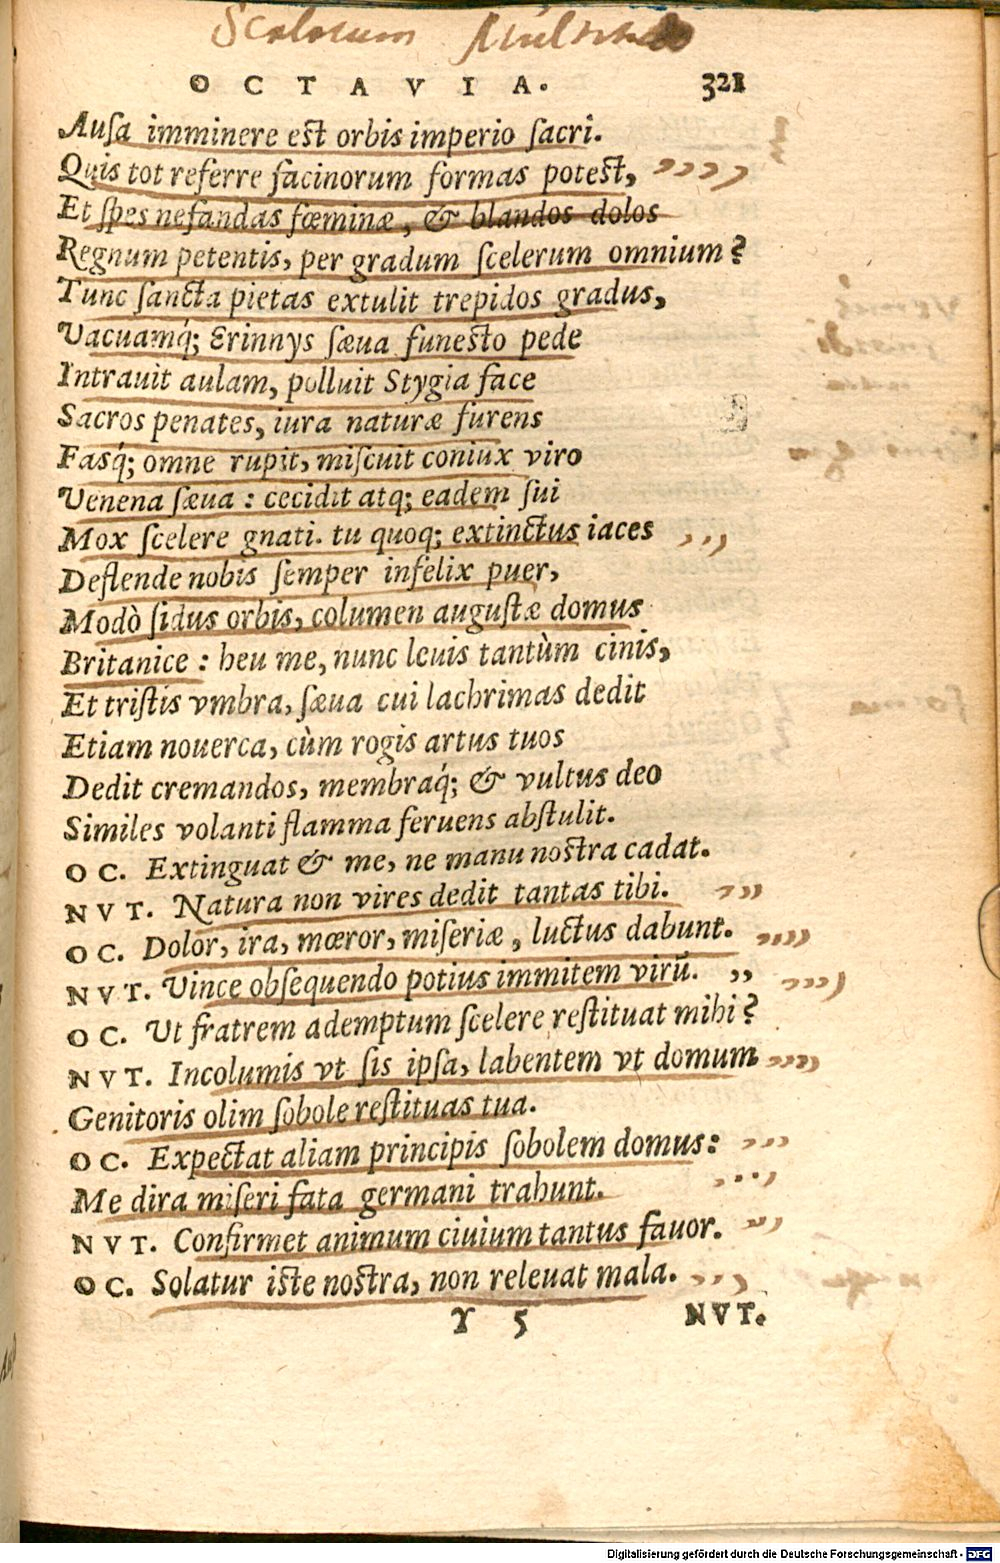 OCTAVIA. 321
Ausa imminere est orbis imperio sacri.
Quis tot referre facinorum formas potest,
Et spes nefandas fœminæ, & blandos dolos
Regnum petentis, per gradum scelerum omnium?
Tunc sancta pietas extulit trepidos gradus,
Vacuamq́; Erinnys sæua funesto pede
Intrauit aulam, polluit Stygia face
Sacros penates, iura naturæ furens
Fasq́; omne rupit, miscuit coniux viro
Venena sæua: cecidit atq; eadem sui
Mox scelere gnati. tu quoq; extinctus iaces
Deflende nobis semper infelix puer,
Modò sidus orbis, columen augustæ domus
Britanice: heu me, nunc leuis tantùm cinis,
Et tristis vmbra, sæua cui lachrimas dedit
Etiam nouerca, cùm rogis artus tuos
Dedit cremandos, membraq́; & vultus deo
Similes volanti flamma feruens abstulit.
OC. Extinguat & me, ne manu nostra cadat.
NVT. Natura non vires dedit tantas tibi.
OC. Dolor, ira, mœror, miseriæ, luctus dabunt.
NVT. Vince obsequendo potius immitem virũ. ,,
OC. Vt fratrem ademptum scelere restituat mihi?
NVT. Incolumis vt sis ipsa, labentem vt domum
Genitoris olim sobole restituas tua.
OC. Expectat aliam principis sobolem domus:
Me dira miseri fata germani trahunt.
NVT. Confirmet animum ciuium tantus fauor.
OC. Solatur iste nostra, non releuat mala.
Y 5 NVT.
Digitalisierung gefördert durch die Deutsche Forschungsgemeinschaft - DFG